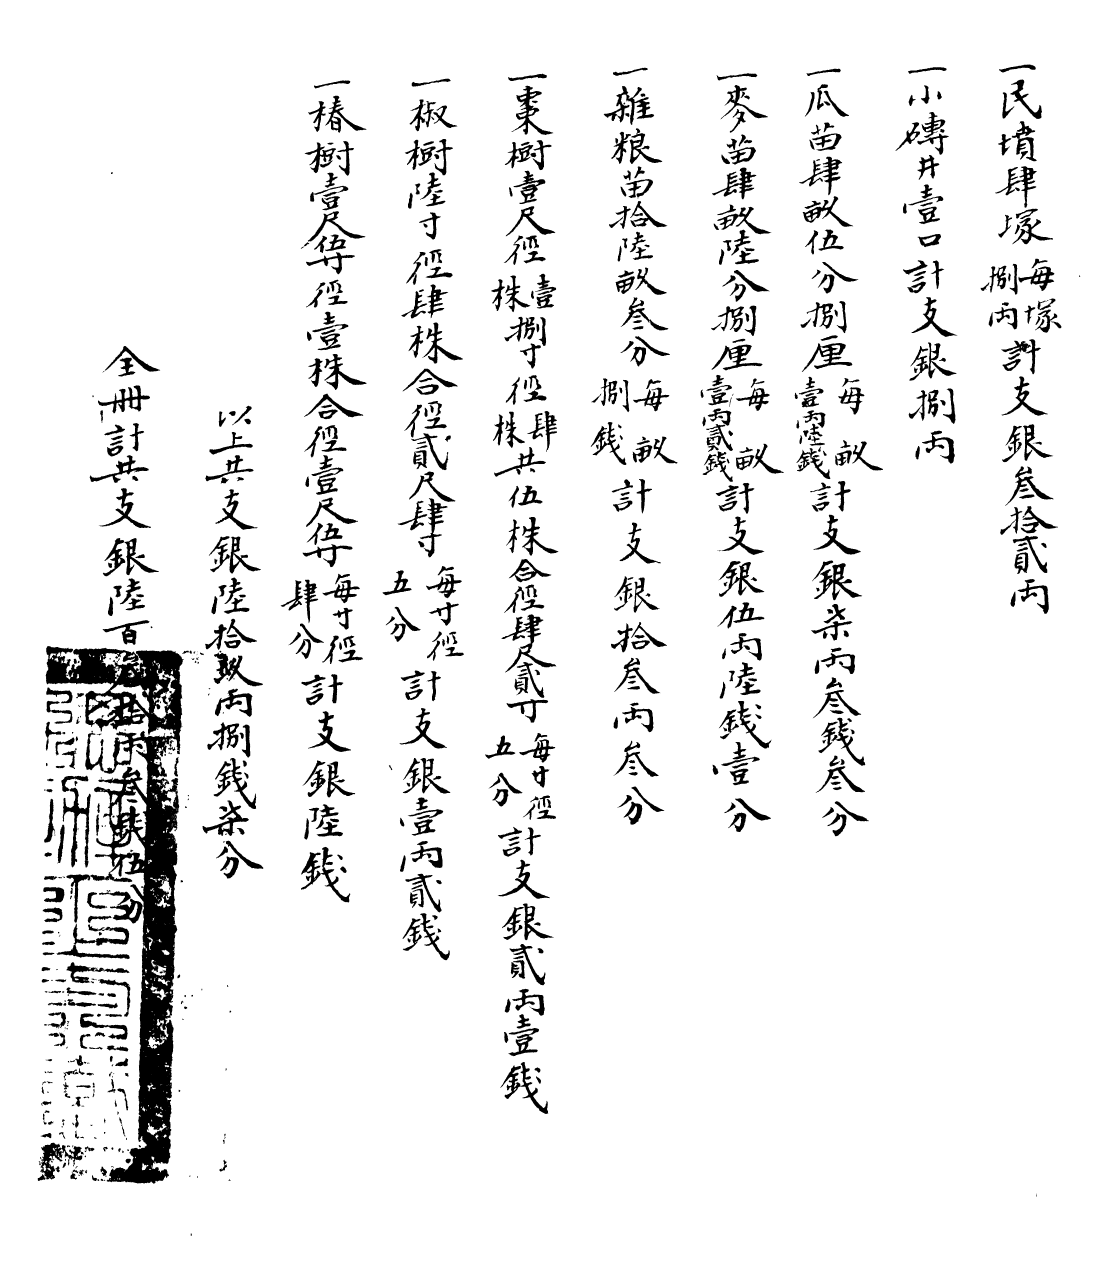 一民墳肆塚每塚捌兩計支銀叁拾貳兩
一小磚井壹口計支銀捌兩
一瓜苗肆畝伍分捌厘每畝壹兩陸錢計支銀柒兩叁錢叁分
一麥苗肆畝陸分捌厘每畝壹兩貳錢計支銀伍兩陸錢壹分
一雜粮苗拾陸畝叁分每畝捌錢計支銀拾叁兩叁分
一棗樹壹尺徑壹株捌寸徑肆株共伍株合徑肆尺貳寸每寸徑五分計支銀貳兩壹錢
一椒樹陸寸徑肆株合徑貳尺肆寸每寸徑五分計支銀壹兩貳錢
一椿樹壹尺伍寸徑壹株合徑壹尺伍寸每寸徑肆分計支銀陸錢
以上共支銀陸拾玖兩捌錢柒分
全冊計共支銀陸百拾兩叁錢伍分